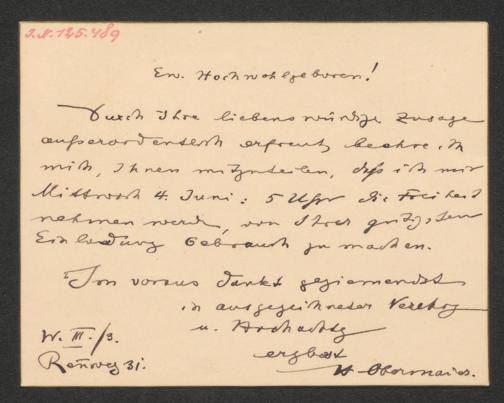 I.N. 125.489
Ew. Hochwohlgeboren!
Durch Ihre liebenswürdige Zusage
außerordentlich erfreut, beehre ich
mich, Ihnen mitzuteilen, daß ich mir
Mittwoch 4. Juni: 5 Uhr die Freiheit
nehmen werde, von Ihrer gütigsten
Einladung Gebrauch zu machen.
Im voraus dankt geziemendst
in ausgezeichneter Verehrg
u. Hochachtg
W. III./3. ergbst
Rennweg 31. H. Obermaier.